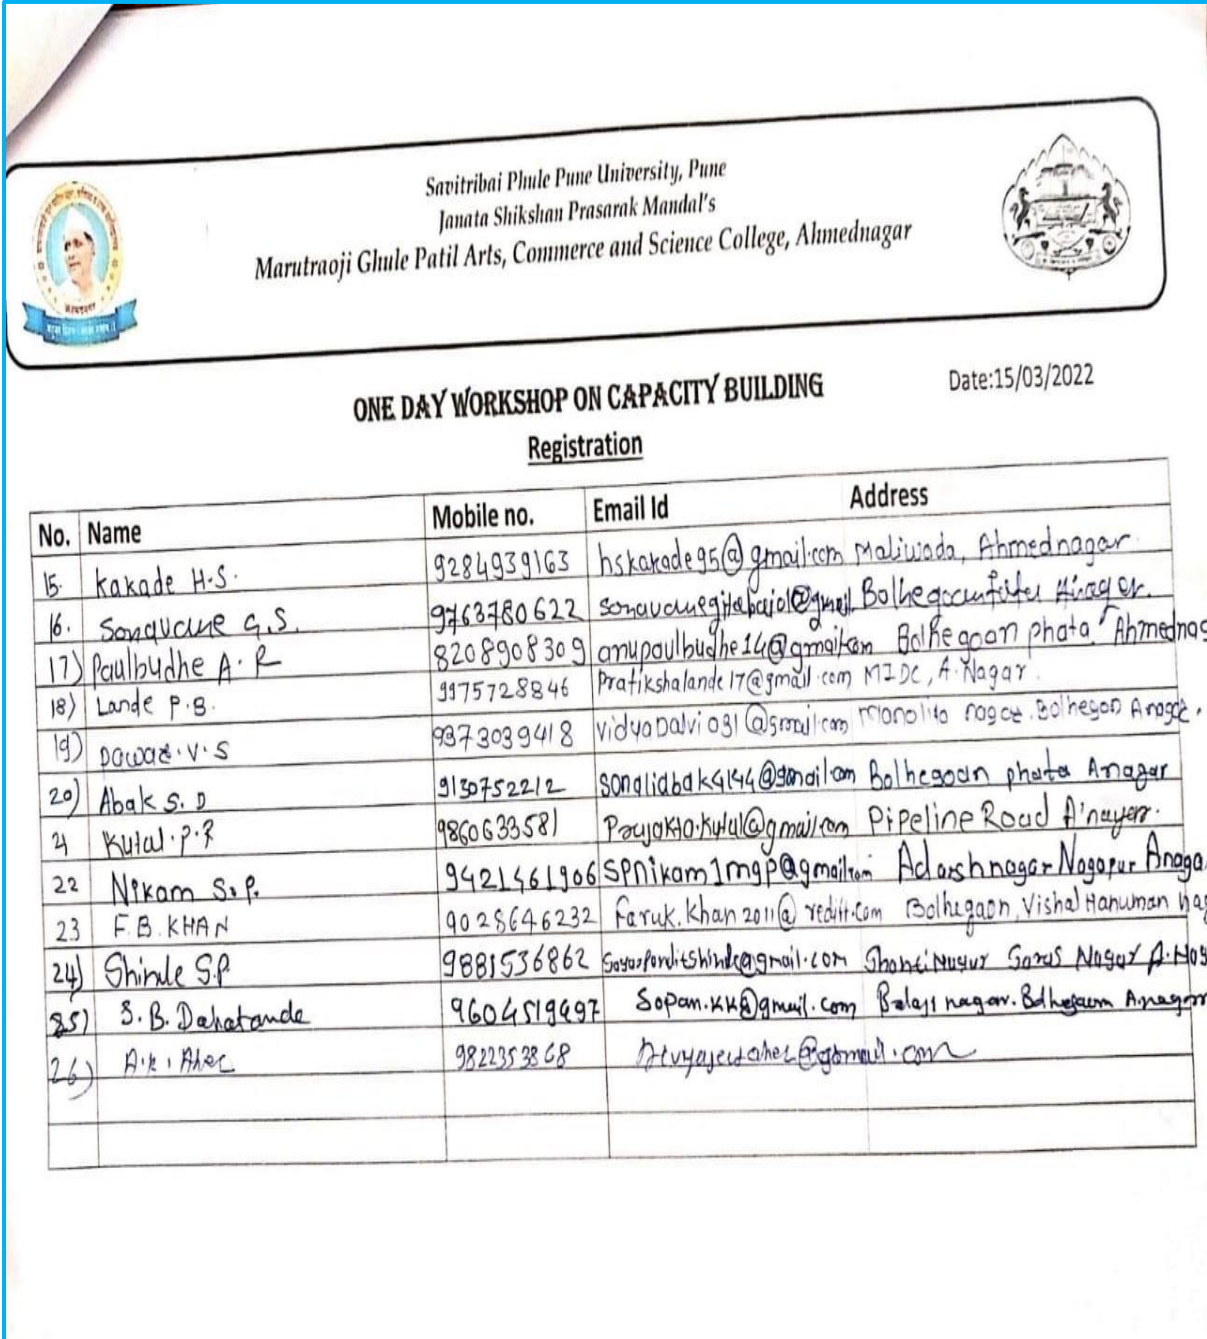 Savitribai Phule Pune University, Pune
Janata Shikshan Prasarak Mandal's
Marutraoji Ghule Patil Arts, Commerce and Science College, Ahmednagar
ONE DAY WORKSHOP ON CAPACITY BUILDING Date:15/03/2022
Registration
No. Name Mobile no. Email Id Address
15. Kakade H.S. 9284939163 hskakade95@gmail.com Maliwada, Ahmednagar.
16. Sonavane G.S. 9763780622
17) Paulbudhe A.R 8208908309 anupaulbudhe14@gmail.com Bolhegaon phata, Ahmednag
18) Lande P.B. 9975728846 Pratikshalande17@gmail.com MIDC, A.Nagar.
19) Pawar.V.S 9373039418 vidyadalvi031@gmail.com nagar.Bolhegaon Anagar.
20) Abak S.D 9130752212 sonaliabak4144@gmail.com Bolhegaon phata Anagar
21 Kutal.P.R 9860633581 Pipeline Road A'nager.
22 Nikam S.P. 9421461906 SPnikam1mgp@gmail.com Adarshnagar Nagapur Anaga
23 F.B.KHAN 9028646232 faruk.khan2011@rediff.com Bolhegaon, Vishal Hanuman nag
24) Shinde S.P 9881536862 Nagar
25) S.B. Dahatonde 9604519697 Sopan.kk@gmail.com Balaji nagar. Bolhegaon A.nagar
26) A.K. Aher 9822353868